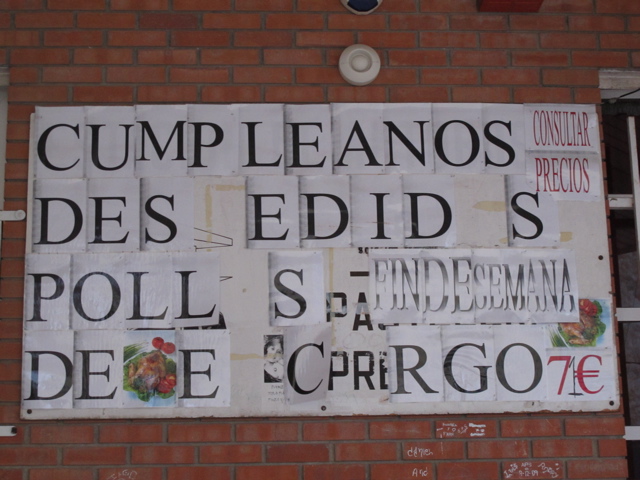 CUMPLEANOS
CONSULTAR
PRECIOS
DES EDID S
POLL S
FINDESEMANA
PAS
DE E C RGO 71€
PRE